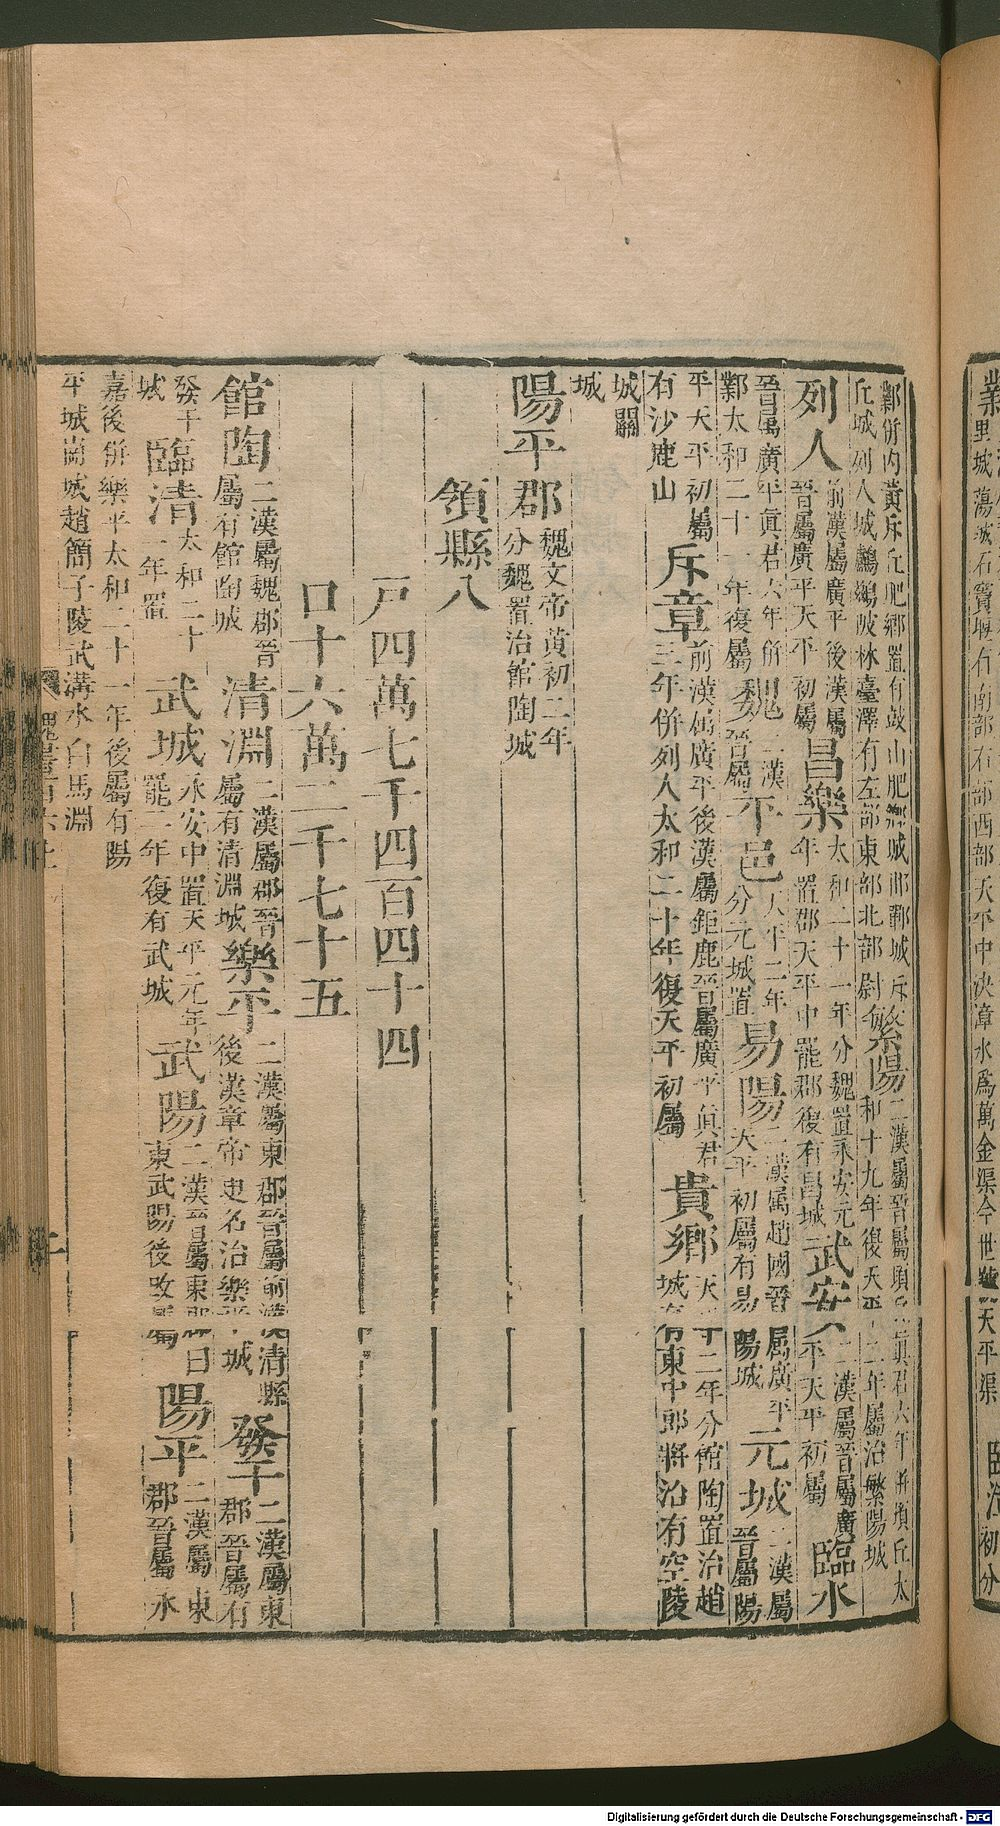 鄴併內黃斥丘肥鄉置有鼓山肥鄉城邯鄲城斥
丘城列人城鸕鷀陂林臺澤有左部東部北部尉
繁陽
二漢屬晉屬頓丘眞君六年併頓丘太
和十九年復天平二年屬治繁陽城
列人
前漢屬廣平後漢屬
晉屬廣平天平初屬
昌樂
太和二十一年分魏置永安元
年置郡天平中罷郡復有昌城
武安
二漢屬晉屬廣
平天平初屬
臨水
晉屬廣平眞君六年併
鄴太和二十一年復屬
魏
二漢
晉屬
平邑
天平二年
分元城置
易陽
二漢屬趙國晉屬廣平
天平初屬有易陽城
元城
二漢屬
晉屬陽
平天平初屬
有沙鹿山
斥章
前漢屬廣平後漢屬鉅鹿晉屬廣平眞君
三年併列人太和二十年復天平初屬
貴鄉
天平二年分館陶置治趙
城有東中郎將治有空陵
城關
城
陽平郡
魏文帝黃初二年
分魏置治館陶城
領縣八
戸四萬七千四百四十四
口十六萬二千七十五
館陶
二漢屬魏郡晉
屬有館陶城
清淵
二漢屬郡晉
屬有清淵城
樂平
二漢屬東郡晉屬前漢清縣
後漢章帝更名治樂平城
發干
二漢屬東
郡晉屬有
發干
城
臨清
太和二十
一年置
武城
永安中置天平元年
罷二年復有武城
武陽
二漢晉屬東郡曰
東武陽後改屬
陽平
二漢屬東
郡晉屬永
嘉後併樂平太和二十一年後屬有陽
平城崗城趙簡子陵武溝水白馬淵
魏書百六上
二
臨漳
初分
天平渠
Digitalisierung gefördert durch die Deutsche Forschungsgemeinschaft - DFG